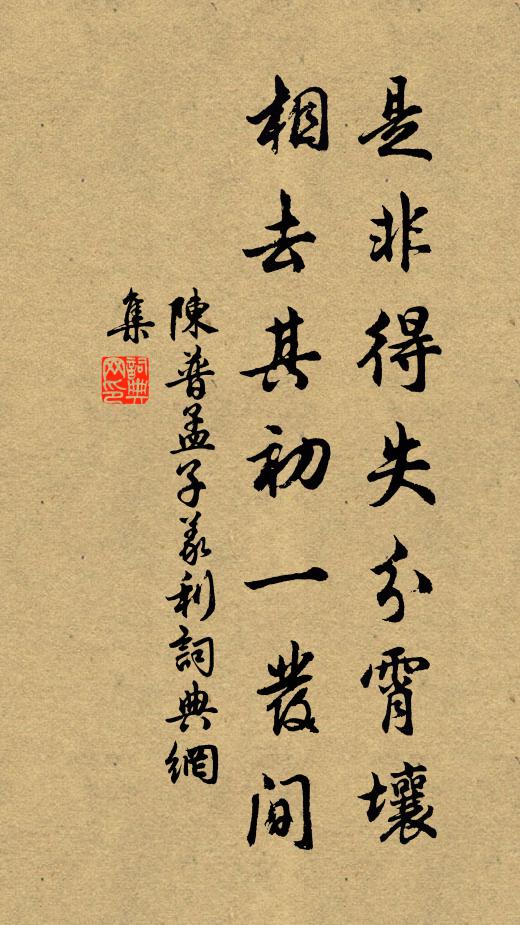 是非得失分霄壤
相去其初一发間
陳普孟子義利詞典網
集
詞典
网印